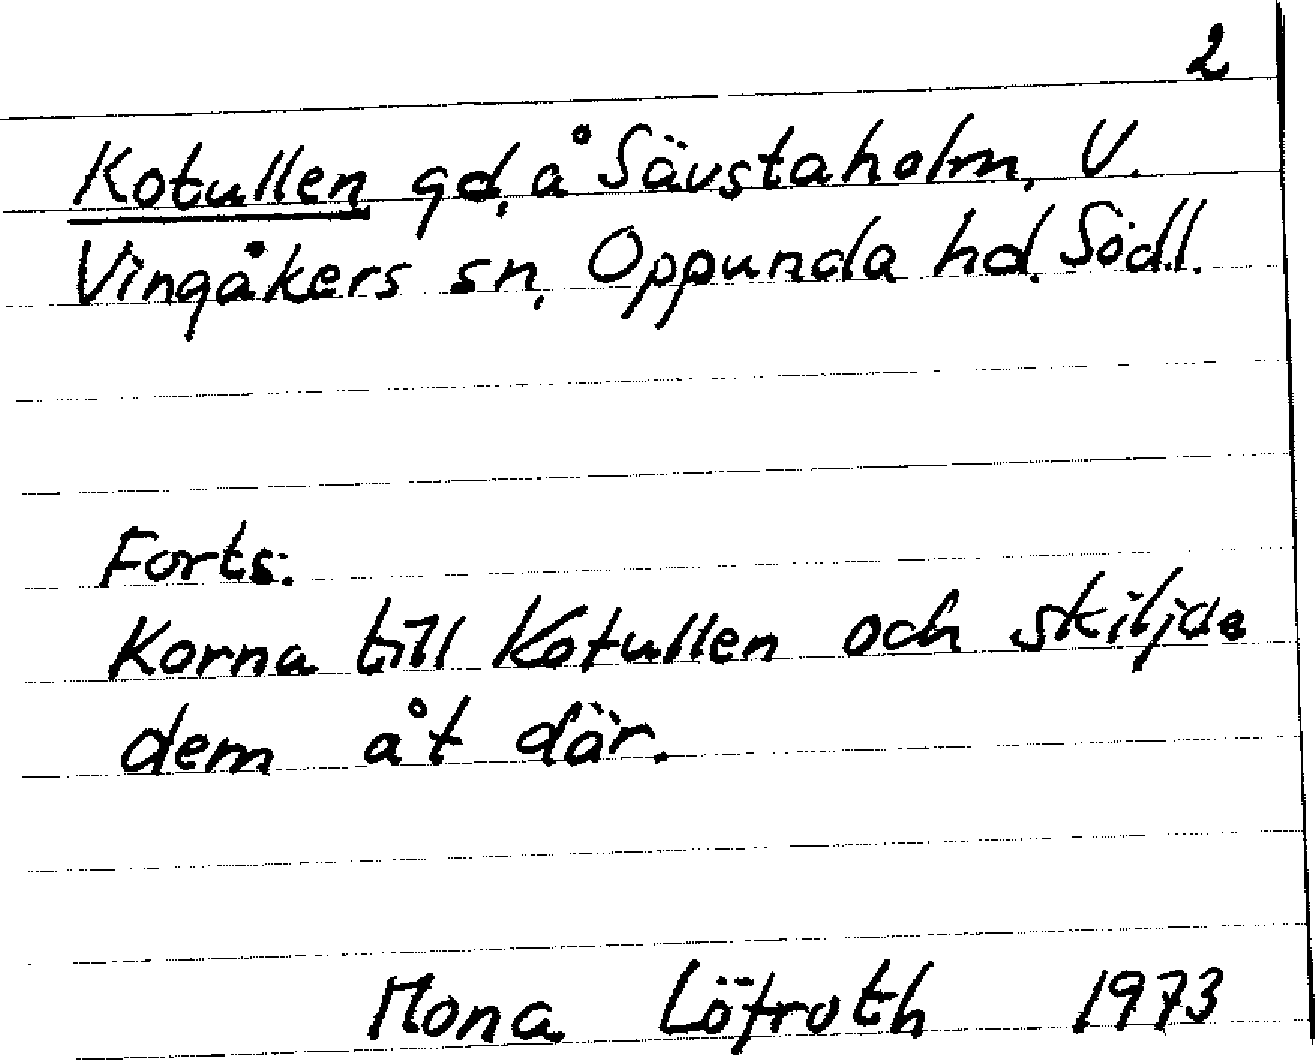 2
Kotullen gd, å Sävstaholm, V.
Vingåkers sn, Oppunda hd. Södl.
Forts.
Korna till Kotullen och skiljde
dem åt där.
Mona Löfroth 1973